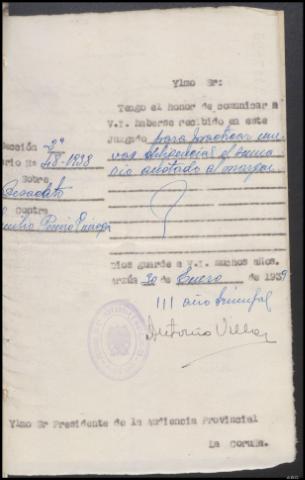 Ylmo Sr:
Tengo el honor de comunicar a
V.Y. haberse recibido en este
Juzgado para practicar nue
vas diligencias el suma
rio anotado al margen
ección 2ª
ario Nº 48-1938
Sobre
Desacato
Contra
Dios guarde a V.I. muchos años.
Arzúa 30 de Enero de 1939
III año triunfal
Antonio Villar
Ylmo Sr Presidente de la Audiencia Provincial
La Coruña.